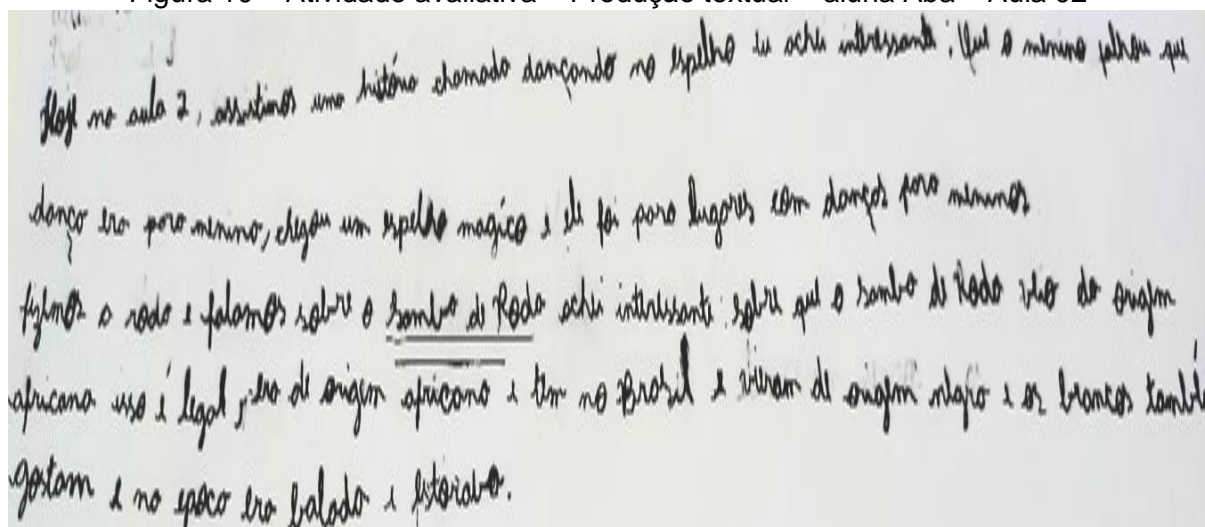 Figura 10 – Atividade avaliativa – Produção textual – aluna Aba – Aula 02
Hoje na aula 2, assistimos uma história chamado dançando no espelho eu achei interessante; Que o menino falou que
dança era para menino, chegou um espelho magico e ele foi para lugares com danças para meninos
fizemos a roda e falamos sobre o Samba de Roda achei interessante: sobre que o samba de Roda veio da origem
africana isso é legal, era de origem africana e tem no Brasil e vieram de origem e os brancos també
gostam e na epoca era